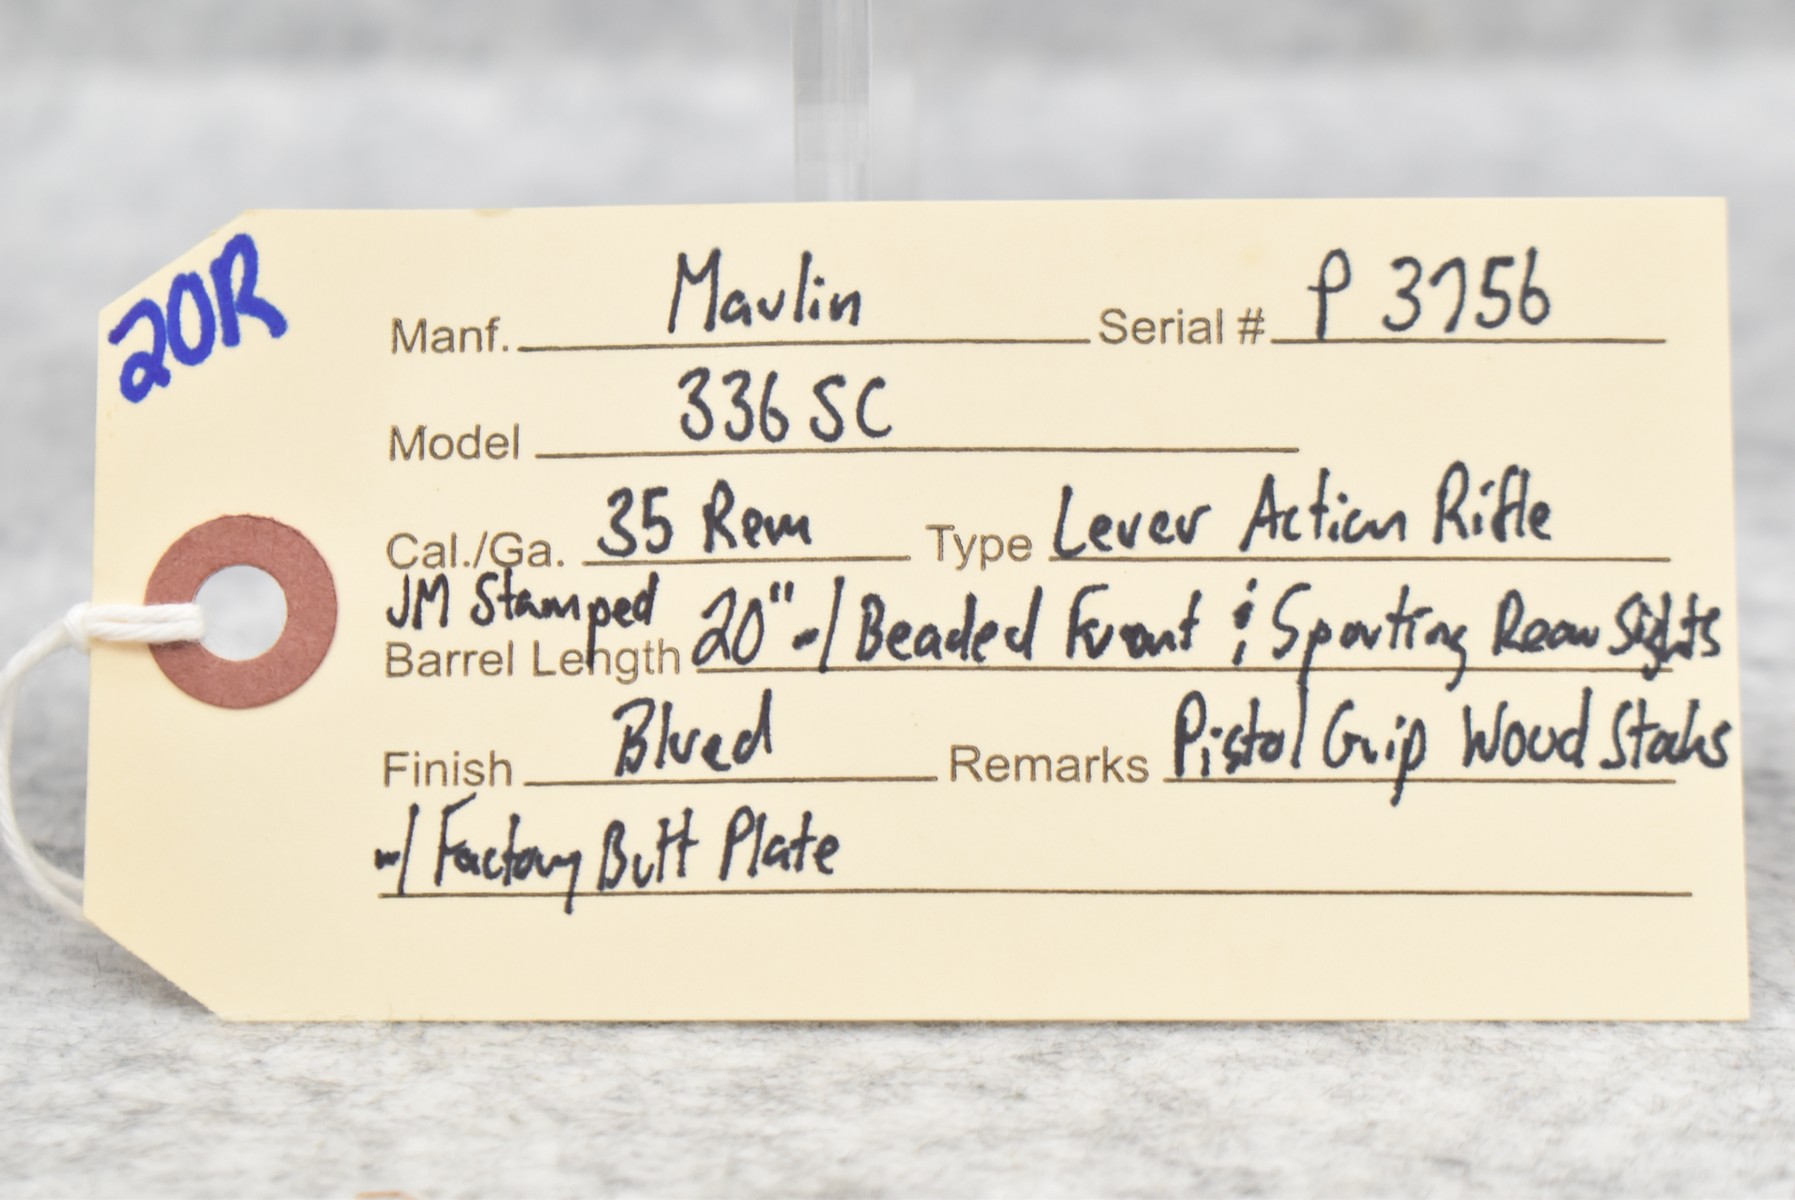 20R
Manf. Marlin Serial # P 3756
Model 336 SC
Cal./Ga. 35 Rem Type Lever Action Rifle
JM Stamped
Barrel Length 20" w/ Beaded Front & Sporting Rear Sights
Finish Blued Remarks Pistol Grip Wood Stocks
w/ Factory Butt Plate